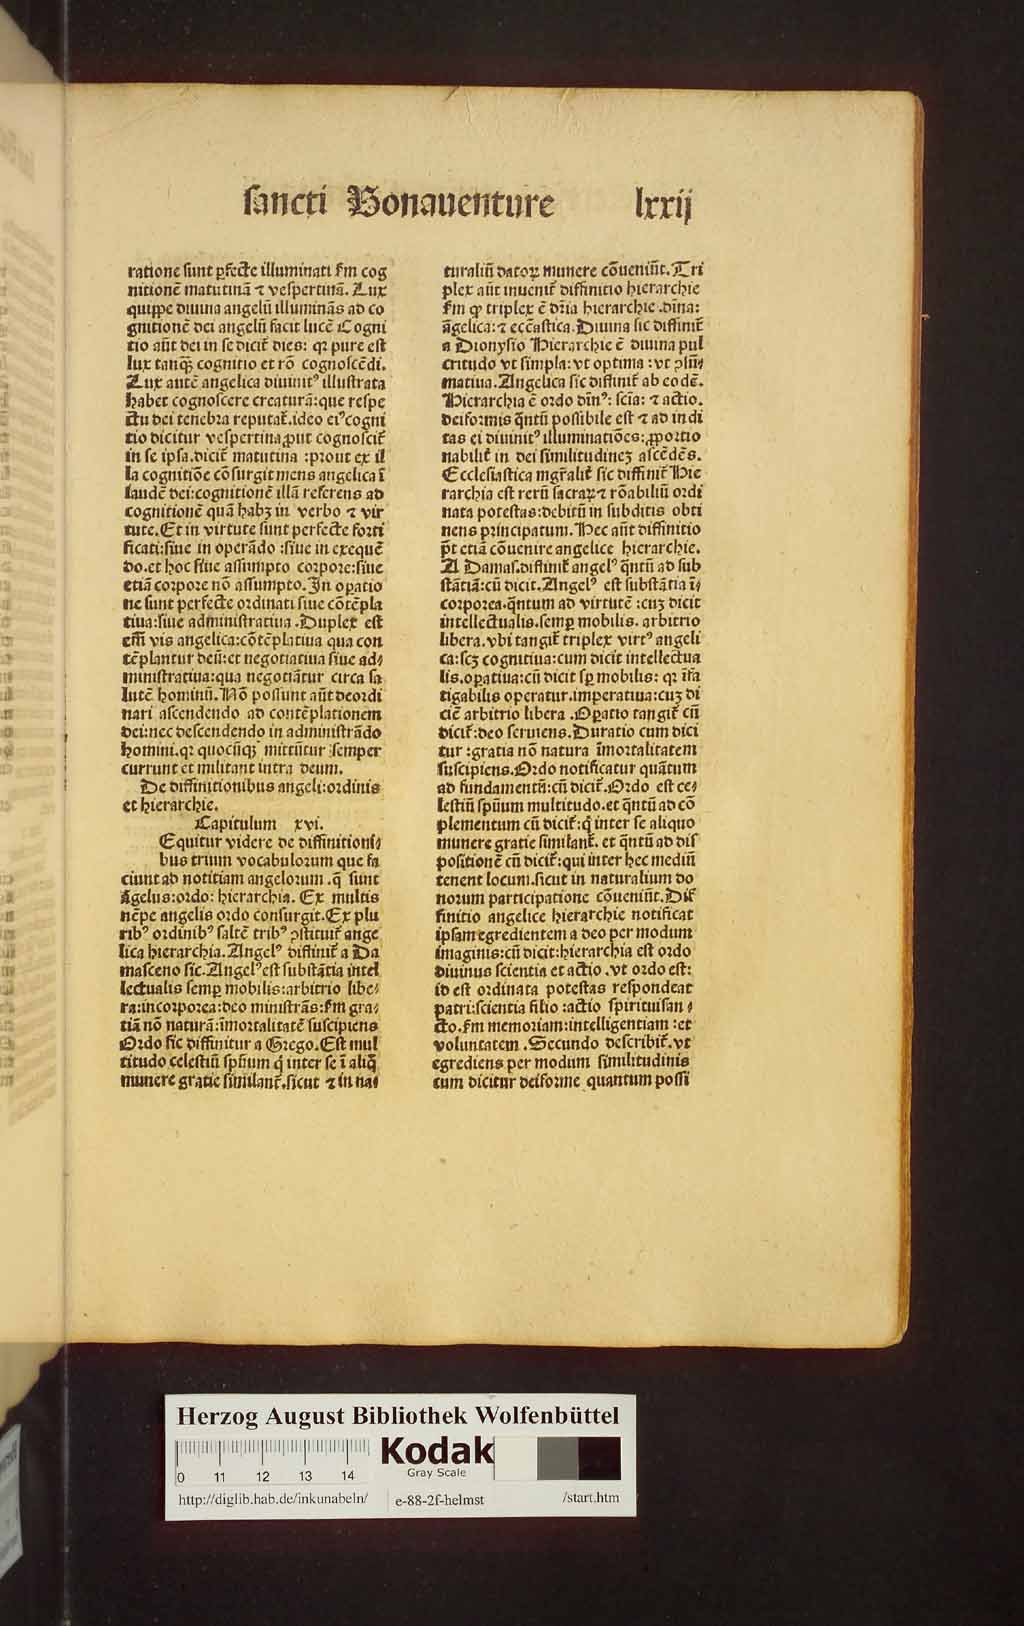 sancti Bonauenture lxxij
ratione sunt ꝑfecte illuminati ẜm cog
nitionē matutinā ⁊ vespertinā. Lux
quippe diuina angelū illuminās ad co
gnitionē dei angelū facit lucē Cogni
tio aūt dei in se dicit̃ dies: qꝛ pure est
lux tanqꝫ cognitio et rō cognoscēdi.
Lux autē angelica diuinitꝰ illustrata
habet cognoscere creaturā:que respe
ctu dei tenebra reputat̃.ideo eiꝰ cogni
tio dicitur vespertina ꝓut cognoscit̃
in se ipsa.dicit̃ matutina :prout ex il
la cognitiōe cōsurgit mens angelica ī
laudē dei:cognitionē illā referens ad
cognitionē quā habꝫ in verbo ⁊ vir
tute.Et in virtute sunt perfecte forti
ficati:siue in operādo :siue in exequē
do.et hoc siue assumpto corpore:siue
etiā corpore nō assumpto.In oꝑatio
ne sunt perfecte ordinati siue cōtēpla
tiua:siue administratiua .Duplex est
em̄ vis angelica:cōtēplatiua qua con
tēplantur deū:et negotiatiua siue ad⸗
ministratiua:qua negotiātur circa sa
lutē hominū.Nō possunt aūt deordi
nari ascendendo ad contēplationem
dei:nec descendendo in administrādo
homini.qꝛ quocūqꝫ mittūtur semper
currunt et militant intra deum.
De diffinitionibus angeli:ordinis
et hierarchie.
Capitulum xvi.
Equitur videre de diffinitioni⸗
bus trium vocabulorum que fa
ciunt ad notitiam angelorum .q̄ sunt
āgelus:ordo: hierarchia. Ex multis
nēpe angelis ordo consurgit.Ex plu
ribꝰ ordinibꝰ saltē tribꝰ ꝯstituit̃ ange
lica hierarchia.Angelꝰ diffinit̃ a Da
masceno sic.Angelꝰ est substātia intel
lectualis semꝑ mobilis:arbitrio libe⸗
ra:incorporea:deo ministrās:ẜm gra⸗
tiā nō naturā:īmortalitatē suscipiens
Ordo sic diffinitur a Grego.Est mul
titudo celestiū spūum q̇ inter se ī aliq̇
munere gratie similant̃.sicut ⁊ in na⸗
turaliū datoꝝ munere cōueniūt.Tri
plex aūt inuenit̃ diffinitio hierarchie
ẜm ꝙ triplex ē dr̄ia hierarchie .diīna:
āgelica:⁊ eccēastica.Diuina sic diffinit̃
a Dionysio Hierarchie ē diuina pul
critudo vt simpla:vt optima :vt ꝯsū⸗
matiua.Angelica sic diffinit̃ ab eodē.
Hierarchia ē ordo diīnꝰ: scīa: ⁊ actio.
deiformis q̄ntū possibile est ⁊ ad indi
tas ei diuinitꝰ illuminatiōes:ꝓportio
nabilit̃ in dei similitudineꝫ ascēdēs.
Ecclesiastica mgr̄alit̃ sic diffinit̃ Hie
rarchia est rerū sacraꝝ ⁊ rōabiliū ordi
nata potestas:debitū in subditis obti
nens principatum.Hec aūt diffinitio
pt̄ etiā cōuenire angelice hierarchie.
A Damas.diffinit̃ angelꝰ q̄ntū ad sub
stātiā:cū dicit.Angelꝰ est substātia ī⸗
corporea.q̄ntum ad virtutē :cuꝫ dicit
intellectualis.semꝑ mobilis. arbitrio
libera.vbi tangit̃ triplex virtꝰ angeli
ca:scꝫ cognitiua:cum dicit intellectua
lis.oꝑatiua:cū dicit sꝑ mobilis: qꝛ īfa
tigabilis operatur.imperatiua:cuꝫ di
cit̃ arbitrio libera .Oꝑatio tangit̃ cū
dicit̃:deo seruiens.Duratio cum dici
tur :gratia nō natura īmortalitatem
suscipiens.Ordo notificatur quātum
ad fundamentū:cū dicit̃.Ordo est ce⸗
lestiū spūum multitudo.et q̄ntū ad cō
plementum cū dicit̃:q̇ inter se aliquo
munere gratie similant̃. et q̄ntū ad dis
positionē cū dicit̃:qui inter hec mediū
tenent locum.sicut in naturalium do
norum participatione cōueniūt.Dif
finitio angelice hierarchie notificat
ipsam egredientem a deo per modum
imaginis:cū dicit:hierarchia est ordo
diuinus scientia et actio .vt ordo est:
id est ordinata potestas respondeat
patri:scientia filio :actio spiritui san⸗
cto.ẜm memoriam:intelligentiam :et
voluntatem .Secundo describit̃.vt
egrediens per modum similitudinis
cum dicitur deiforme quantum possi
Herzog August Bibliothek Wolfenbüttel
Kodak
Gray Scale
0 11 12 13 14
http://diglib.hab.de/inkunabeln/ e-88-2f-helmst /start.htm